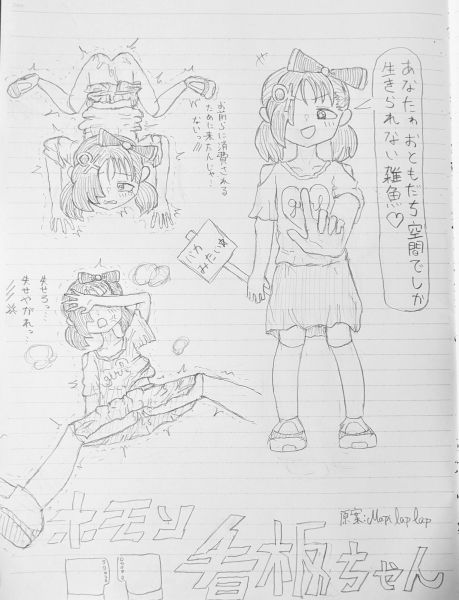 あなたゎおともだち空間でしか
生きられない雑魚♡
お前らに消費される
ために来たんじゃ…
ないっ…!!
バカ
みたい☆
失せろっ…
失せやがれっ…
原案:Mapi lap lap
ホモソ
看板ちゃん